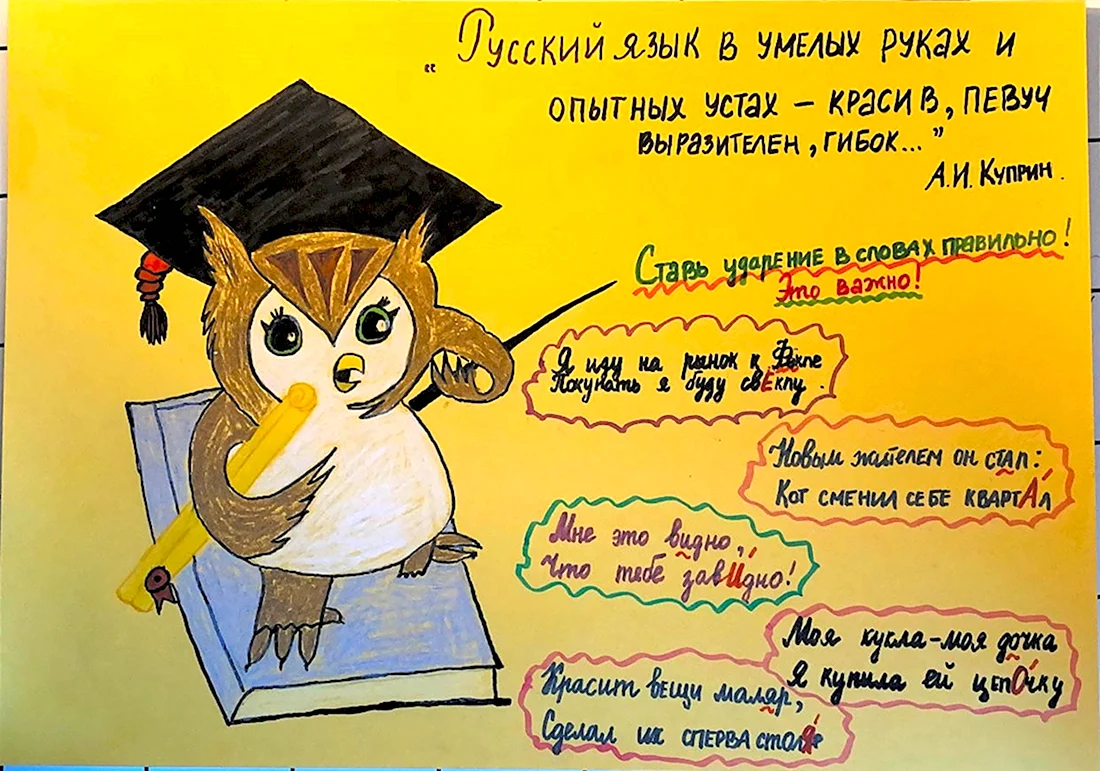 „Русский язык в умелых руках и
опытных устах – красив, певуч
выразителен, гибок..."
А.И. Куприн.
Ставь ударение в словах правильно!
Это важно!
Я иду на рынок к Фёкле
Покупать я буду свЕклу.
Новым жителем он стал:
Кот сменил себе квартА́л
Мне это видно,
Что тебе завИ́дно!
Моя кукла-моя дочка
Я купила ей цепО́чку
Красит вещи маляр,
Сделал их сперва столЯ́р